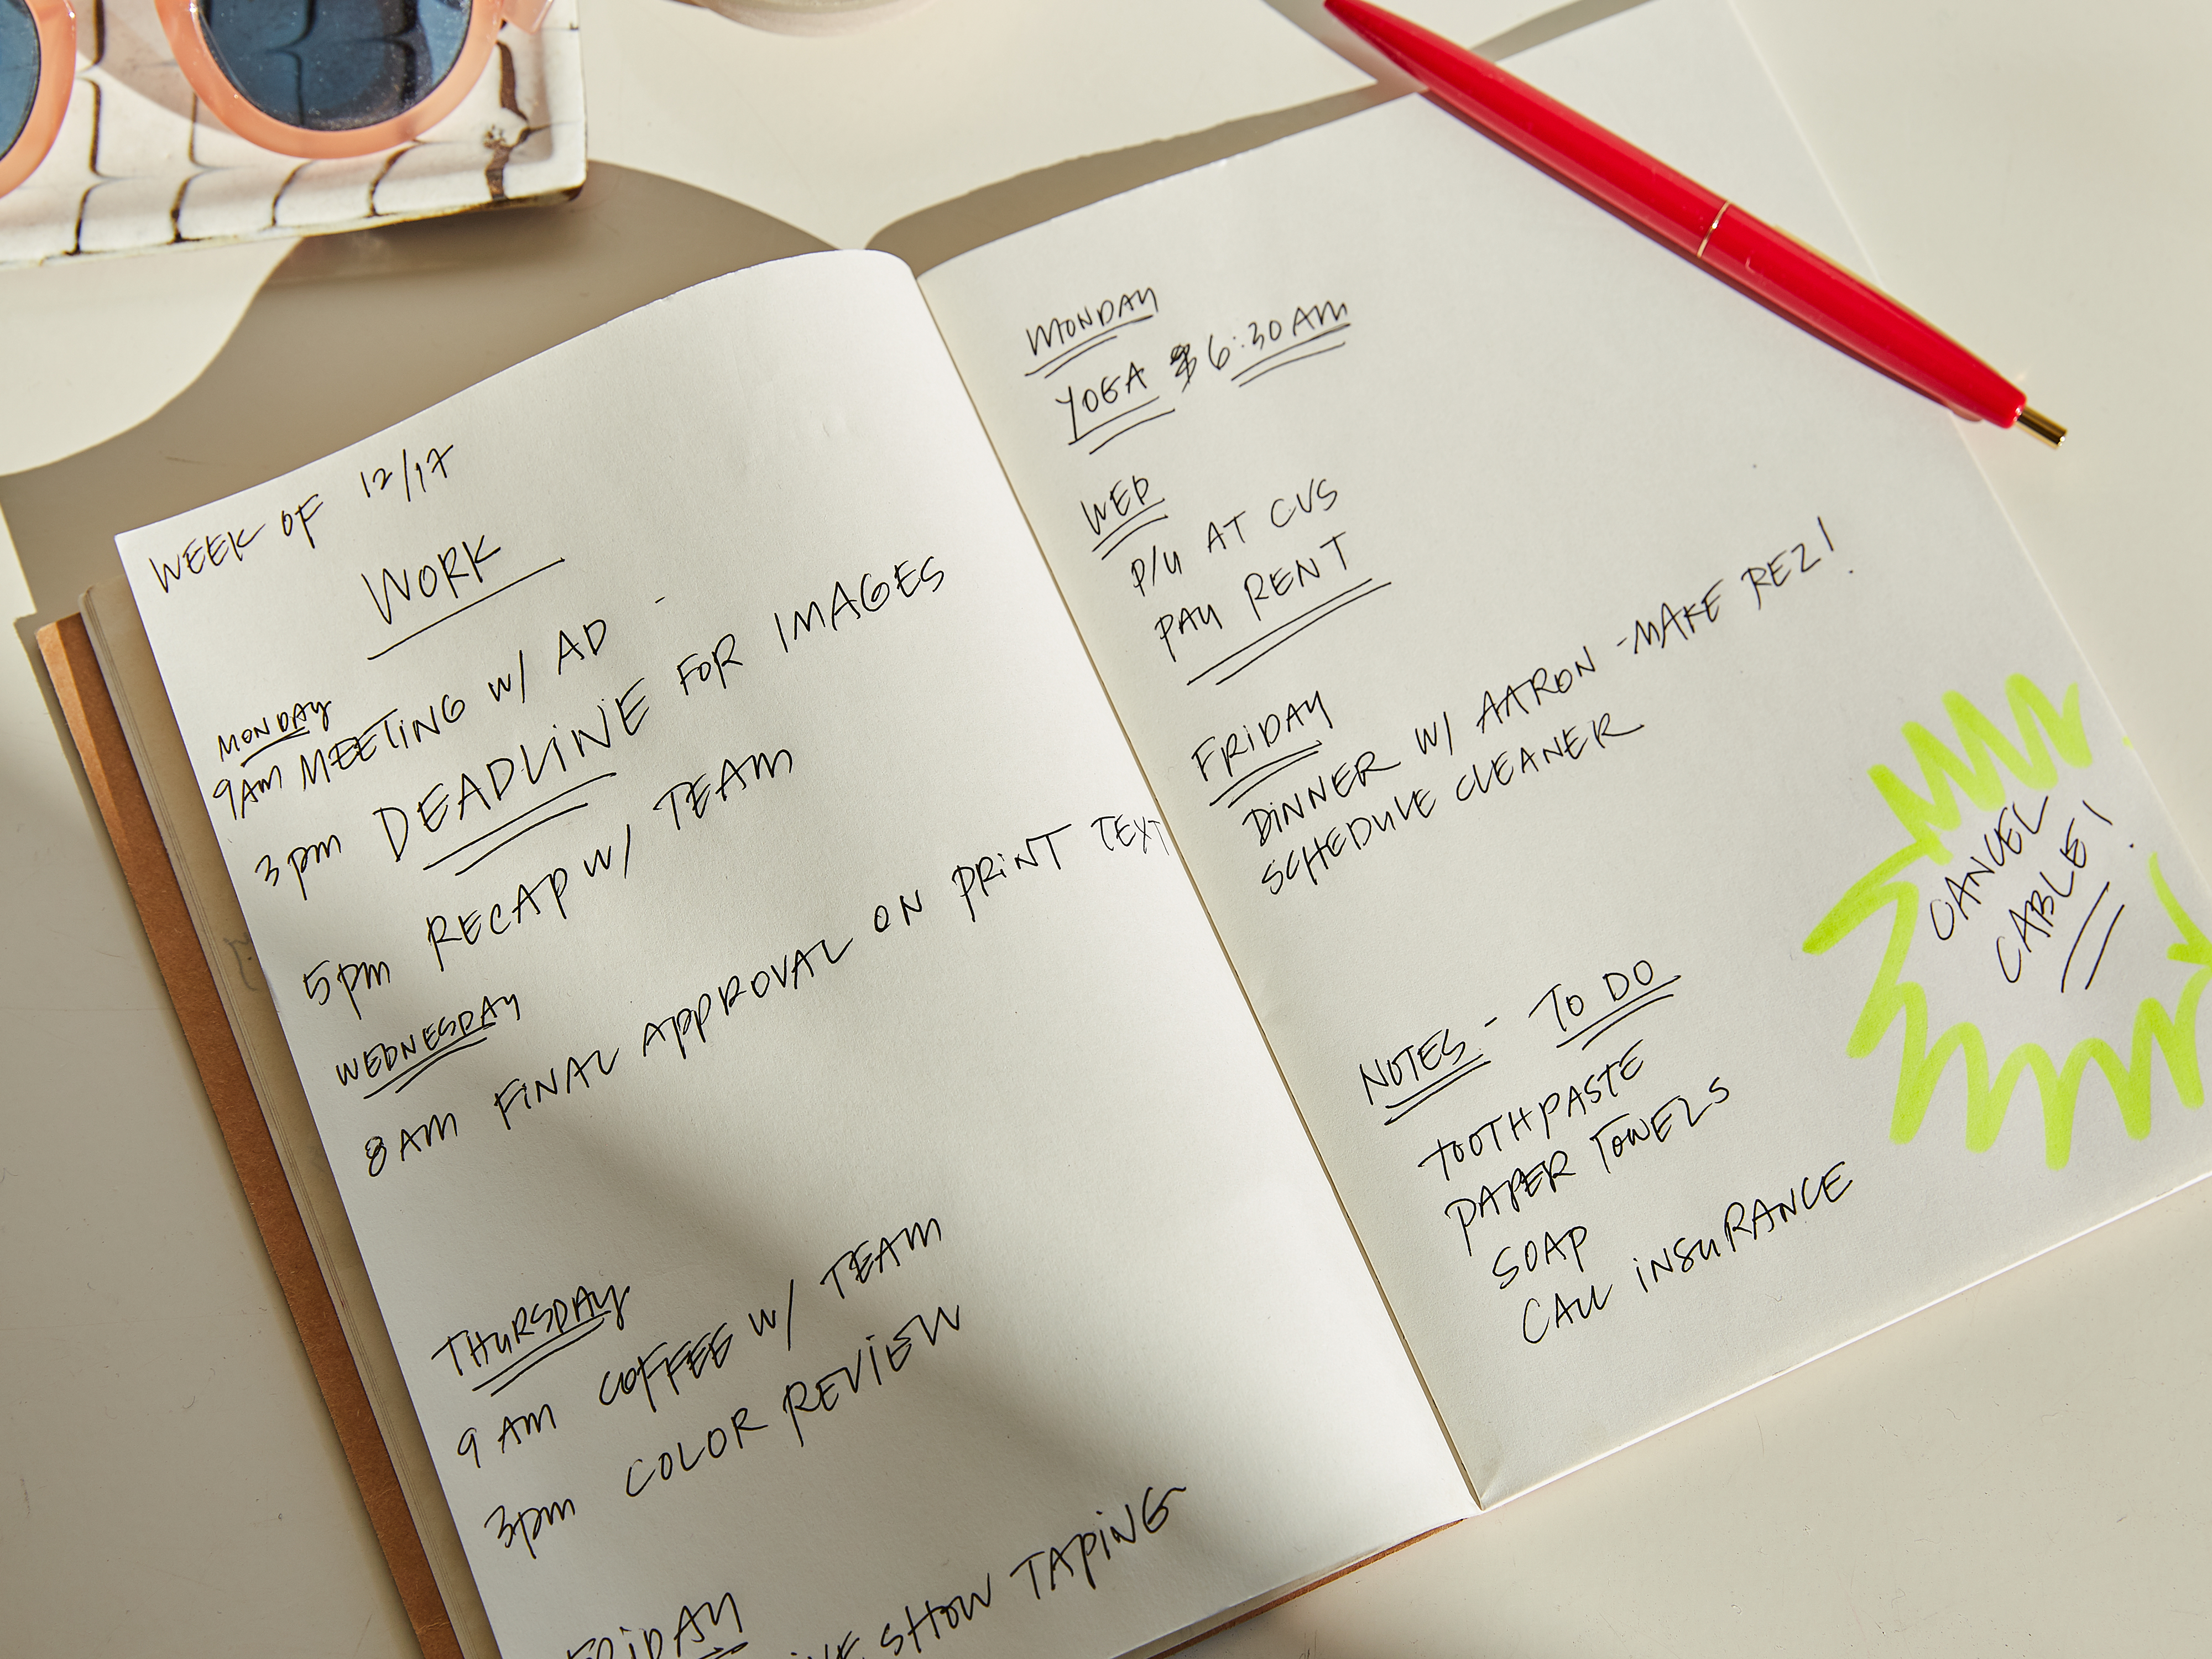 WEEK OF 12/17
WORK
MONDAY
9AM MEETING W/ AD -
3pm DEADLINE FOR IMAGES
5pm RECAP W/ TEAM
WEDNESDAY
8AM FINAL APPROVAL ON PRINT TEXT
THURSDAY
9 AM COFFEE W/ TEAM
3pm COLOR REVIEW
FRIDAY
SHOW TAPING
MONDAY
YOGA 6:30AM
WED
P/U AT CVS
PAY RENT
FRIDAY
DINNER W/ AARON - MAKE REZ!
SCHEDULE CLEANER
CANCEL
CABLE!
NOTES - TO DO
TOOTHPASTE
PAPER TOWELS
SOAP
CALL INSURANCE